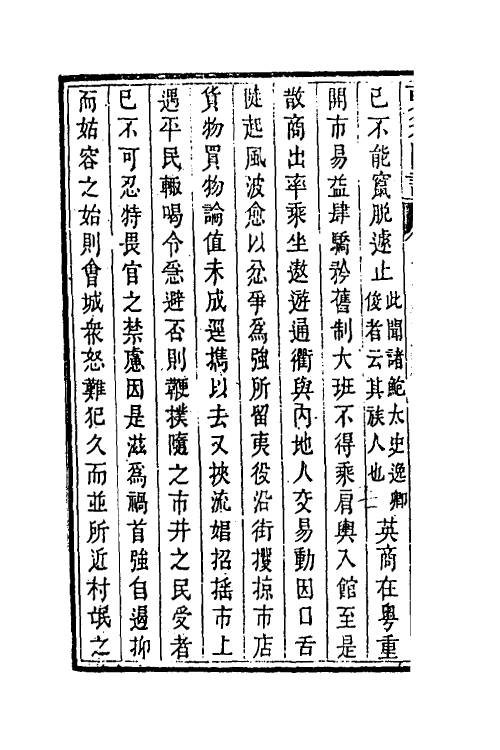 已不能竄脫遂止此聞諸鮑太史逸卿俊者云其族人也英商在粵重
開市易益肆驕矜舊制大班不得乘肩輿入館至是
散商出率乘坐遨遊通衢與內地人交易動因口舌
陡起風波愈以忿爭為強所留夷役沿街攫掠市店
貨物買物論值未成逕攜以去又挾流娼招搖市上
遇平民輒喝令急避否則鞭撲隨之市井之民受者
已不可忍特畏官之禁慮因是滋為禍首強自遏抑
而姑容之始則會城衆怒難犯久而並所近村氓之